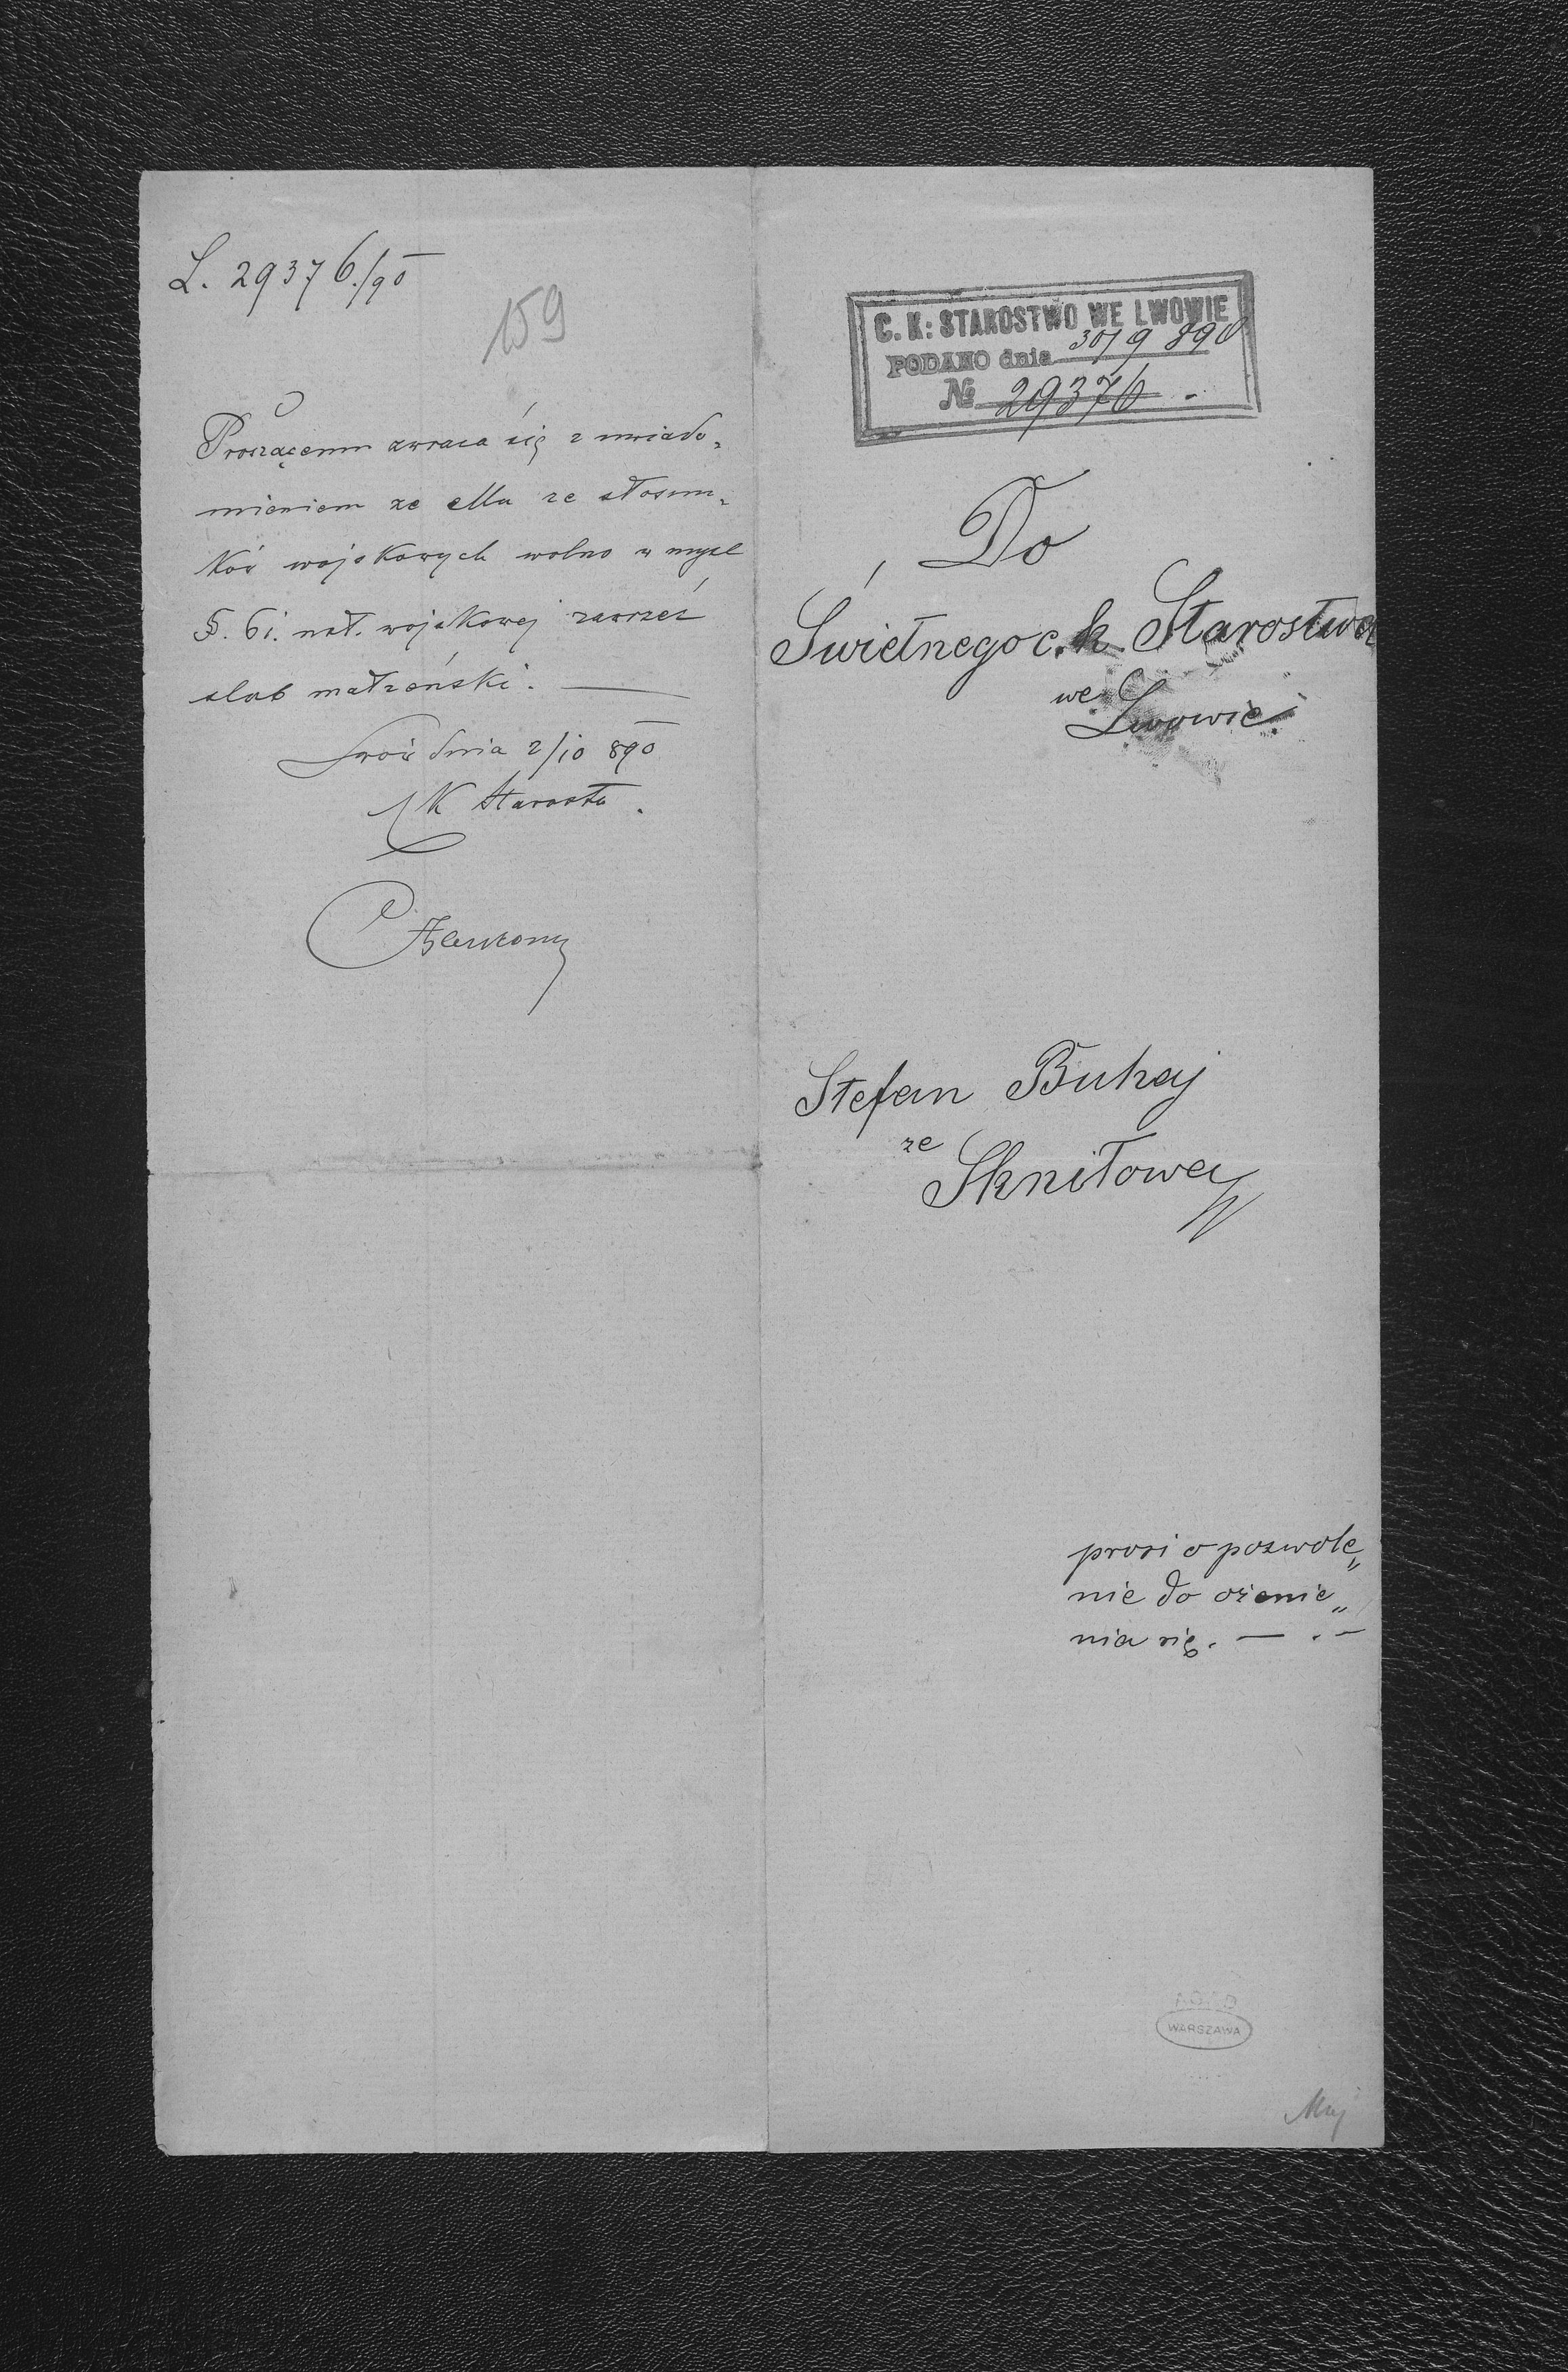 L. 29376./90
159
Proszącemu zwraca się z uwiado-
mieniem że Mu ze stosun-
ków wojskowych wolno w myśl
§. 61. ust. wojskowej zawrzeć
ślub małżeński. —
Lwów dnia 2/10 890
CK Starosta.
C. K: STAROSTWO WE LWOWIE
PODANO dnia 30/9 890
№ 29376 -
Do
Świetnego c. k. Starostwa
we
Lwowie
Stefan Buhaj
ze
Skniłowa
prosi o pozwole„
nie do ożenie„
nia się. — . —
WARSZAWA